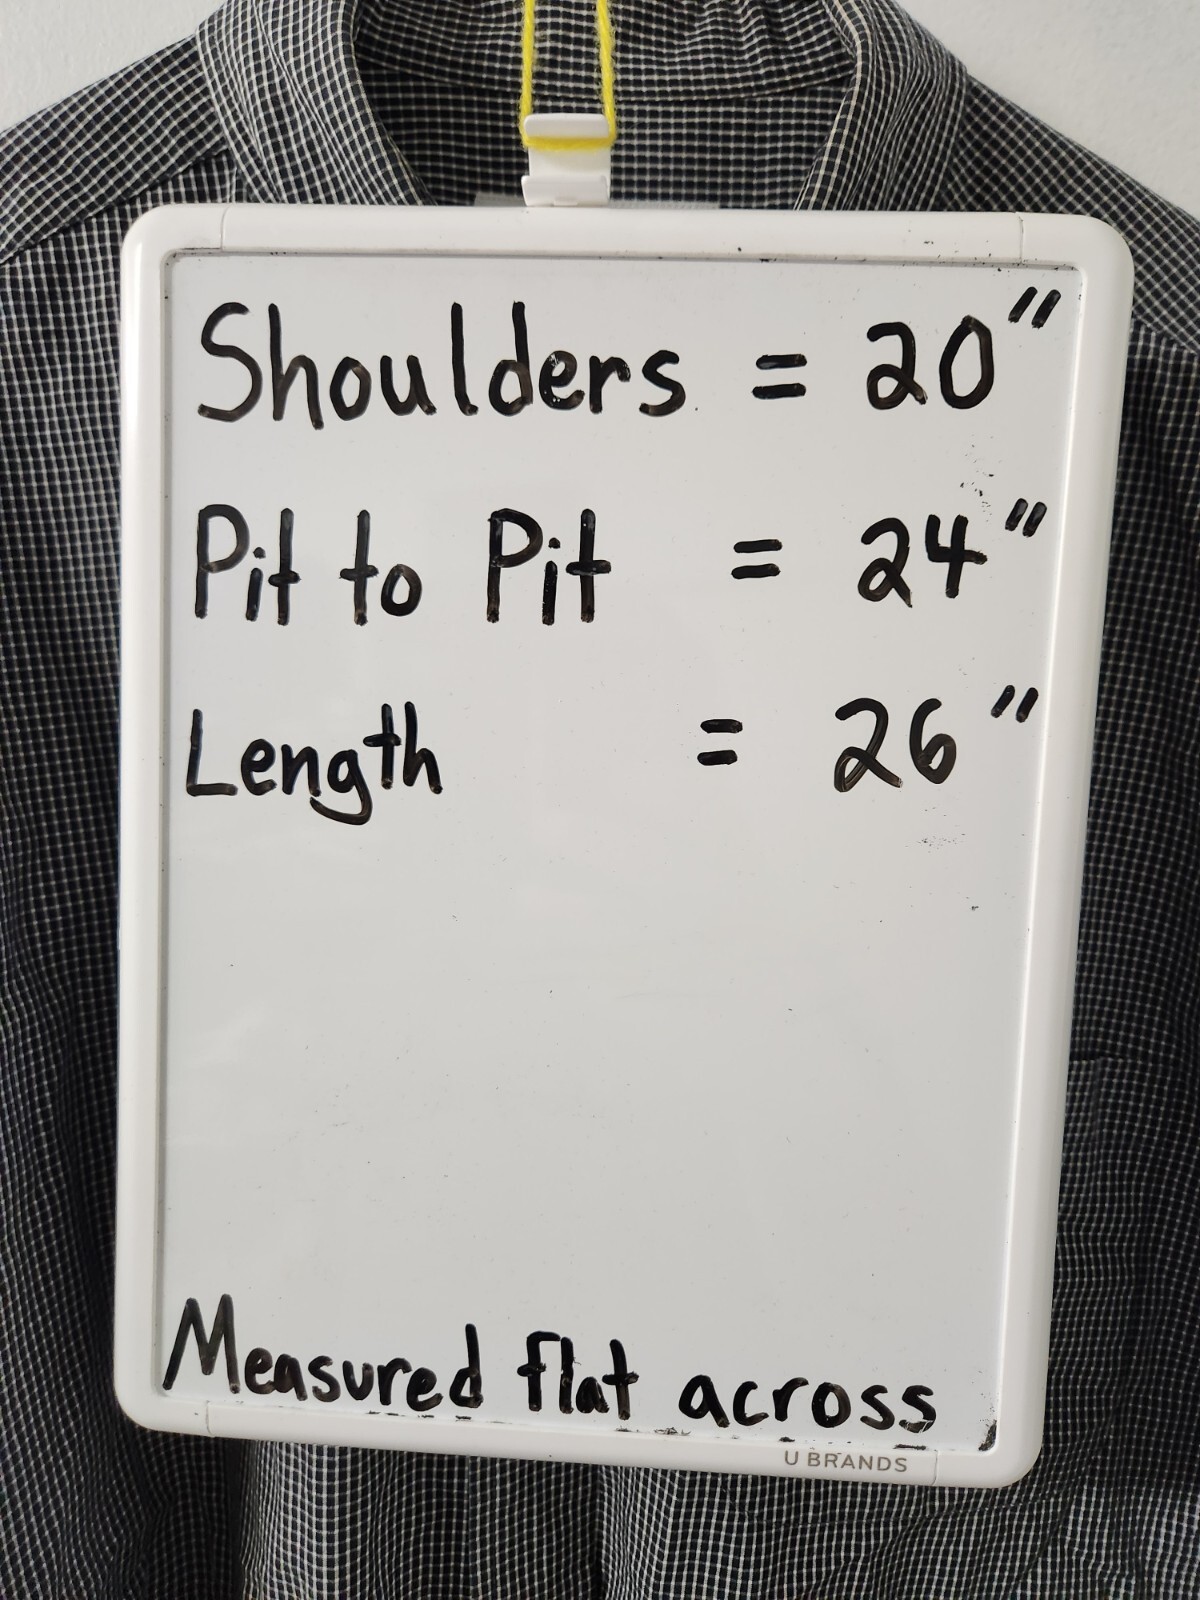 Shoulders = 20"
Pit to Pit = 24"
Length = 26"
Measured flat across
U BRANDS